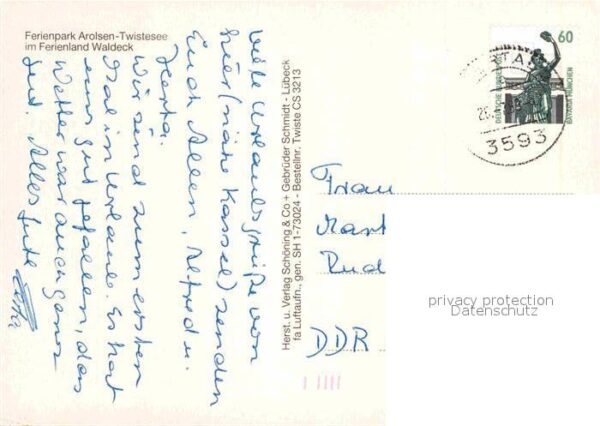 Ferienpark Arolsen-Twistesee
im Ferienland Waldeck
Viele Urlaubsgrüße von
hier (nähe Kassel) senden
Euch Allen, Alfred u.
Herta.
Wir sind zum ersten
Mal in Urlaub. Es hat
uns gut gefallen, das
Wetter war auch ganz
gut. Alles Gute
Herst. u. Verlag Schöning & Co + Gebrüder Schmidt - Lübeck
fa Luftaufn., gen. SH 1-73024 - Bestellnr. Twiste CS 3213
60
DEUTSCHE BUNDESPOST
BAVARIA MÜNCHEN
3593
Frau
Mart
Rud
DDR
privacy protection
Datenschutz